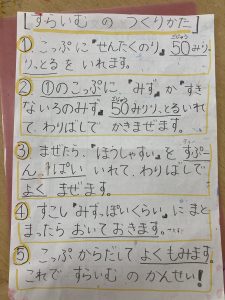 [すらいむ の つくりかた]
① こっぷに『せんたくのり』50みり
りっとる を いれます。
② ①のこっぷに、『みず』か『すき
ないろのみず』50みりりっとるいれ
て、わりばしで かきまぜます。
③ まぜたら、『ほうしゃすい』を すぷー
ん 1ぱい いれて、わりばしで
よく まぜます。
④ すこし『みずっぽいくらい』に まと
まったら おいておきます。
⑤ こっぷ からだして よくもみます。
これで すらいむ の かんせい!